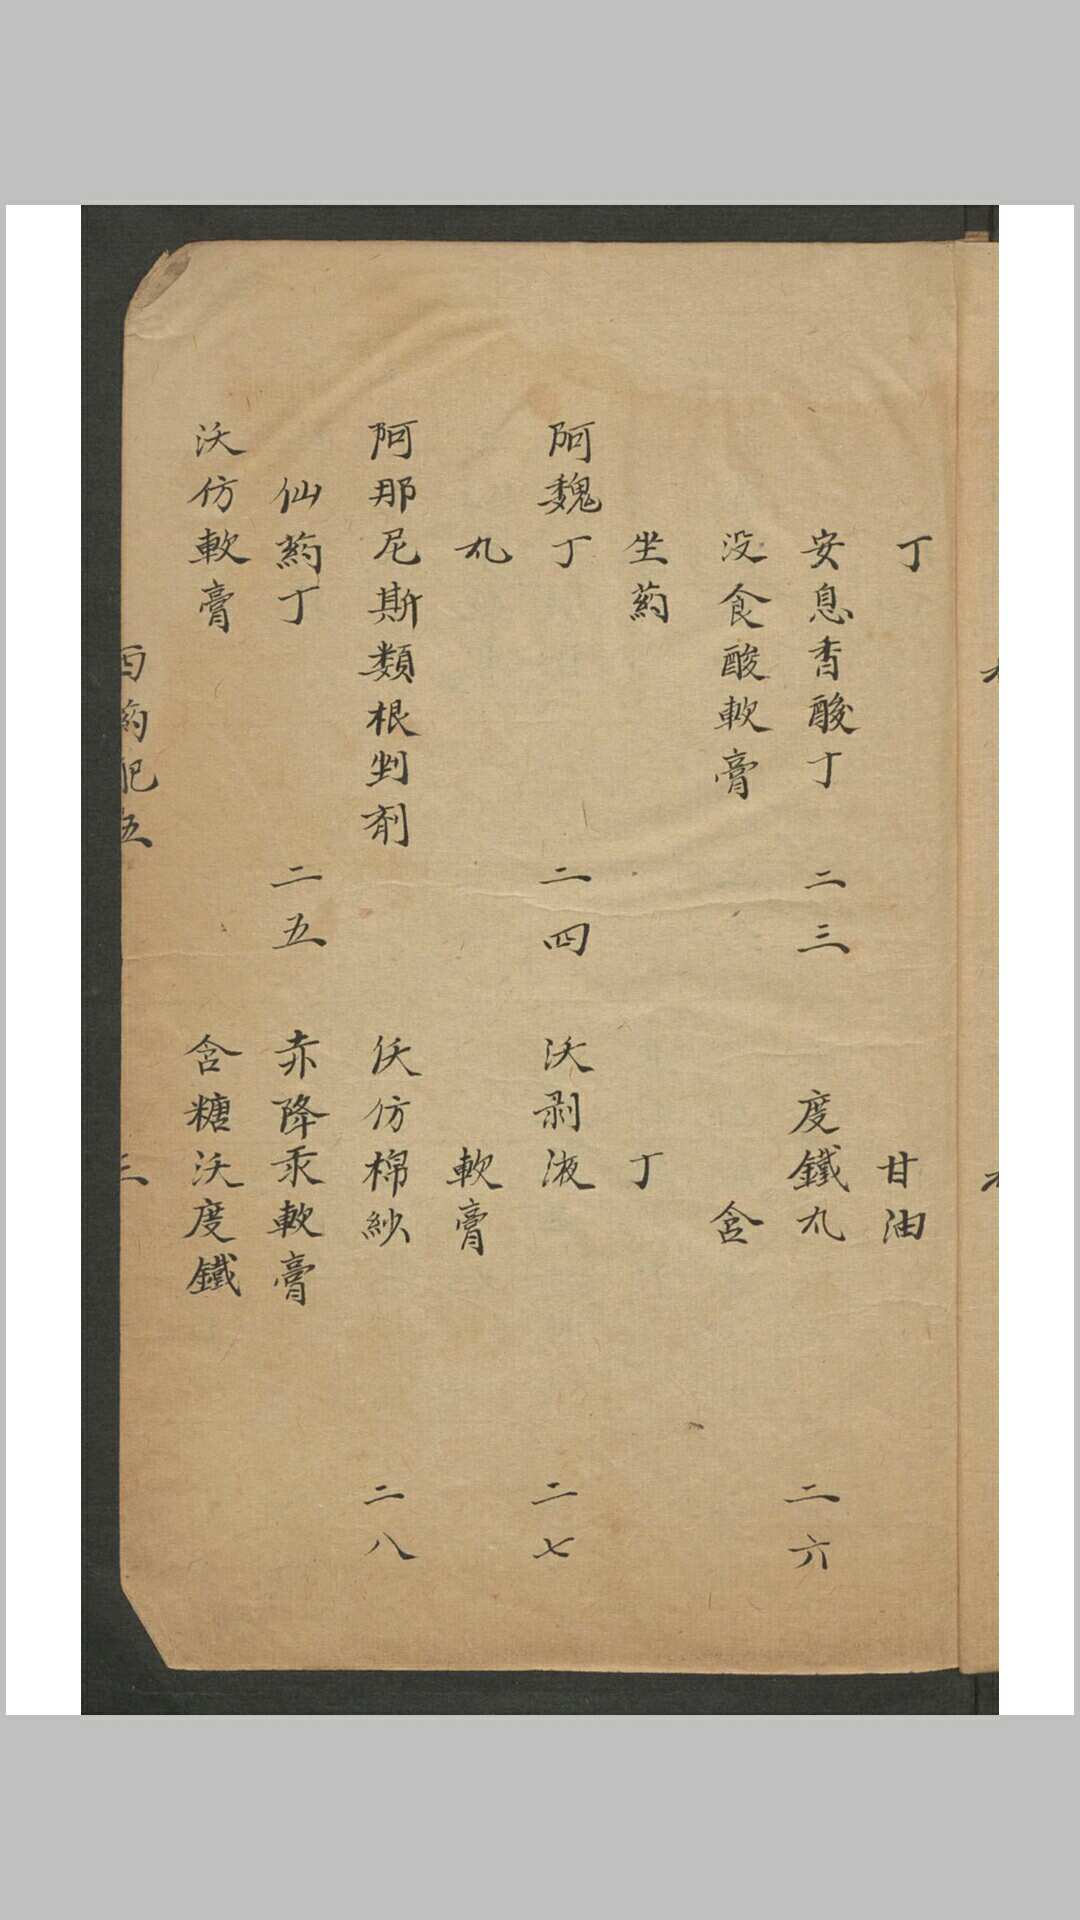 丁
安息香酸丁 二三
没食酸軟膏
坐葯
阿魏丁 二四
丸
阿那尼斯類根剉剤
仙葯丁 二五
沃仿軟膏
甘油
度鐵丸 二六
含
丁
沃剥液 二七
軟膏
沃仿棉紗 二八
赤降汞軟膏
含糖沃度鐵
西葯配伍 三